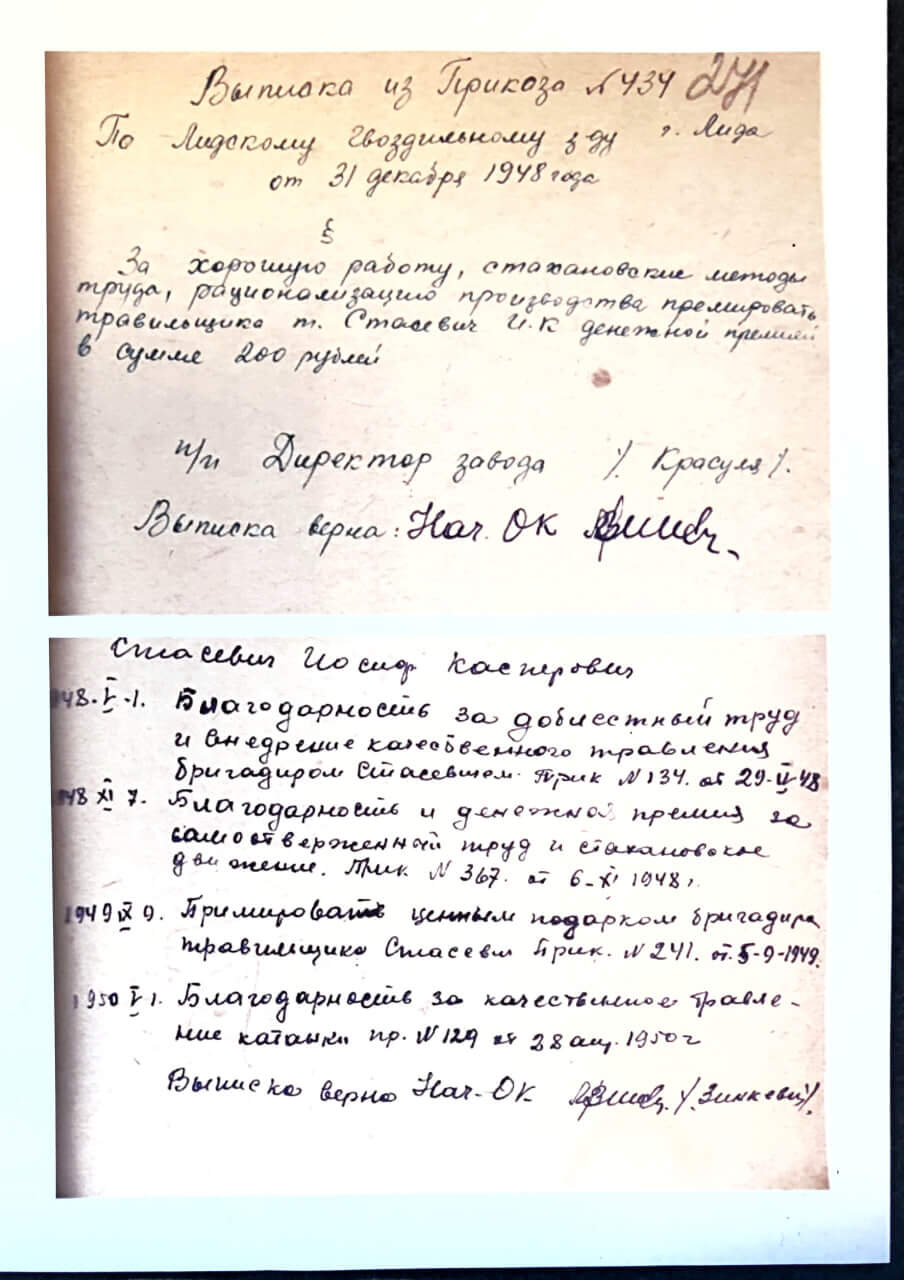 Выписка из Приказа № 434 271
По Лидскому гвоздильному з-ду г. Лида
от 31 декабря 1948 года
§
За хорошую работу, стахановские методы
труда, рационализацию производства премировать
травильщика т. Стасевич И.К денежной премией
в сумме 200 рублей
п/п Директор завода /Красуля/.
Выписка верна: Нач. ОК
Стасевич Иосиф Касперович
1948.V-1. Благодарность за доблестный труд
и внедрение качественного травления
бригадиром Стасевичем. Прик N 134. от 29-IV-48
1948 XI 7. Благодарность и денежной премия за
самоотверженный труд и стахановское
движение. Прик N 367. от 6-XI 1948 г.
1949 IX 9. Примировать ценным подарком бригадира
травильщика Стасевич Прик. N 241. от. 5-9-1949.
1950 V 1. Благодарность за качественное травле-
ние катанки пр. N 129 от 28 апр. 1950 г
Выписка верно Нач-ОК /Зинкевич/.